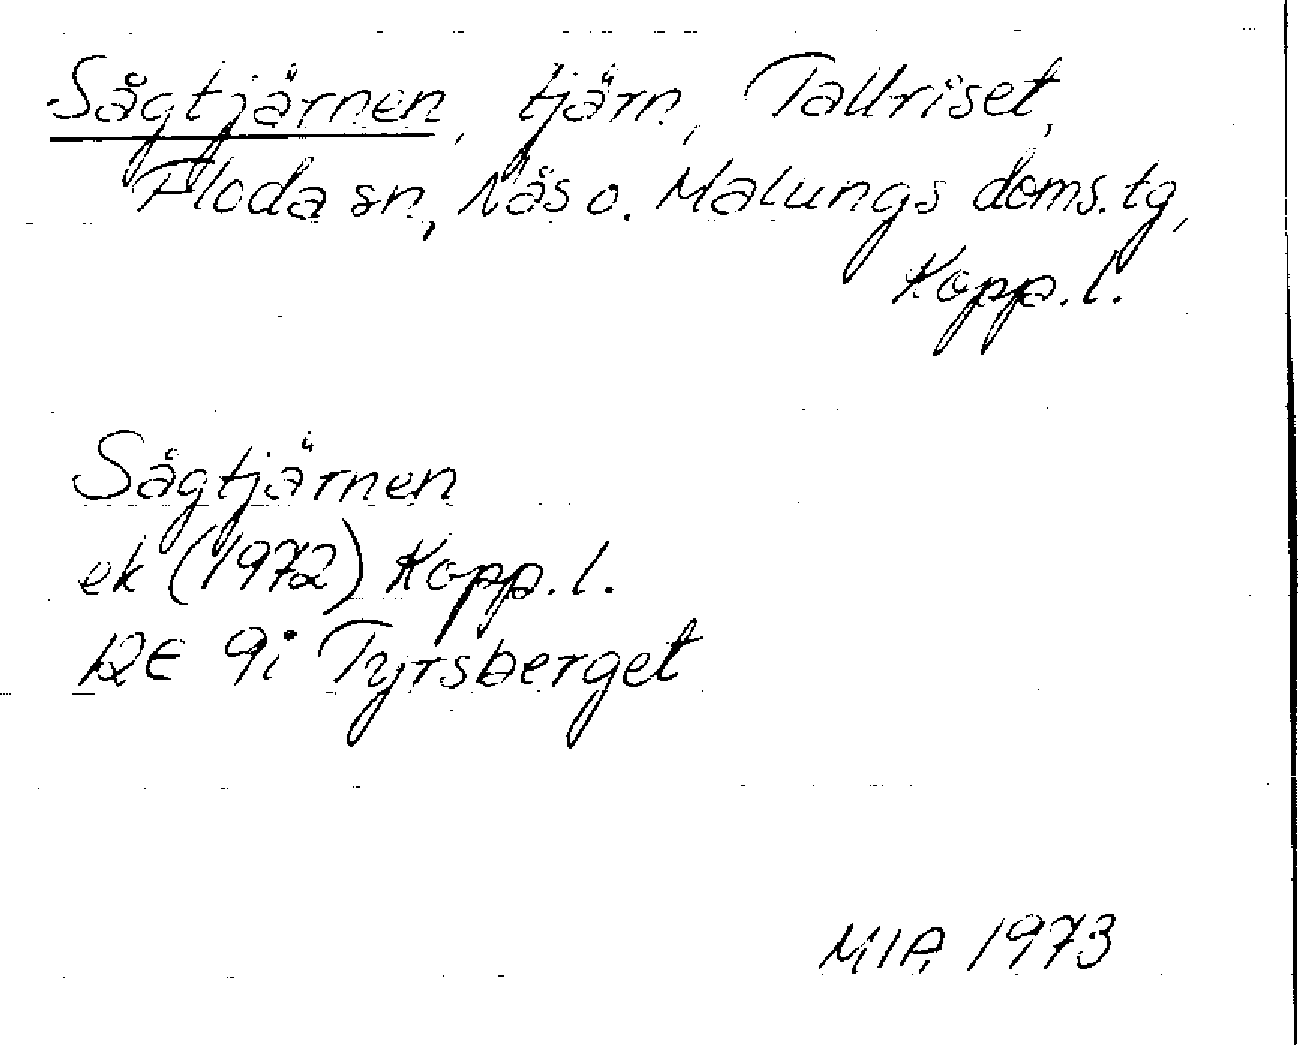 Sågtjärnen, tjärn, Tallriset,
Floda sn, Nås o. Malungs doms.tg,
Kopp.l.
Sågtjärnen
ek (1972) Kopp.l.
12E 9i Tyrsberget
MIP, 1973